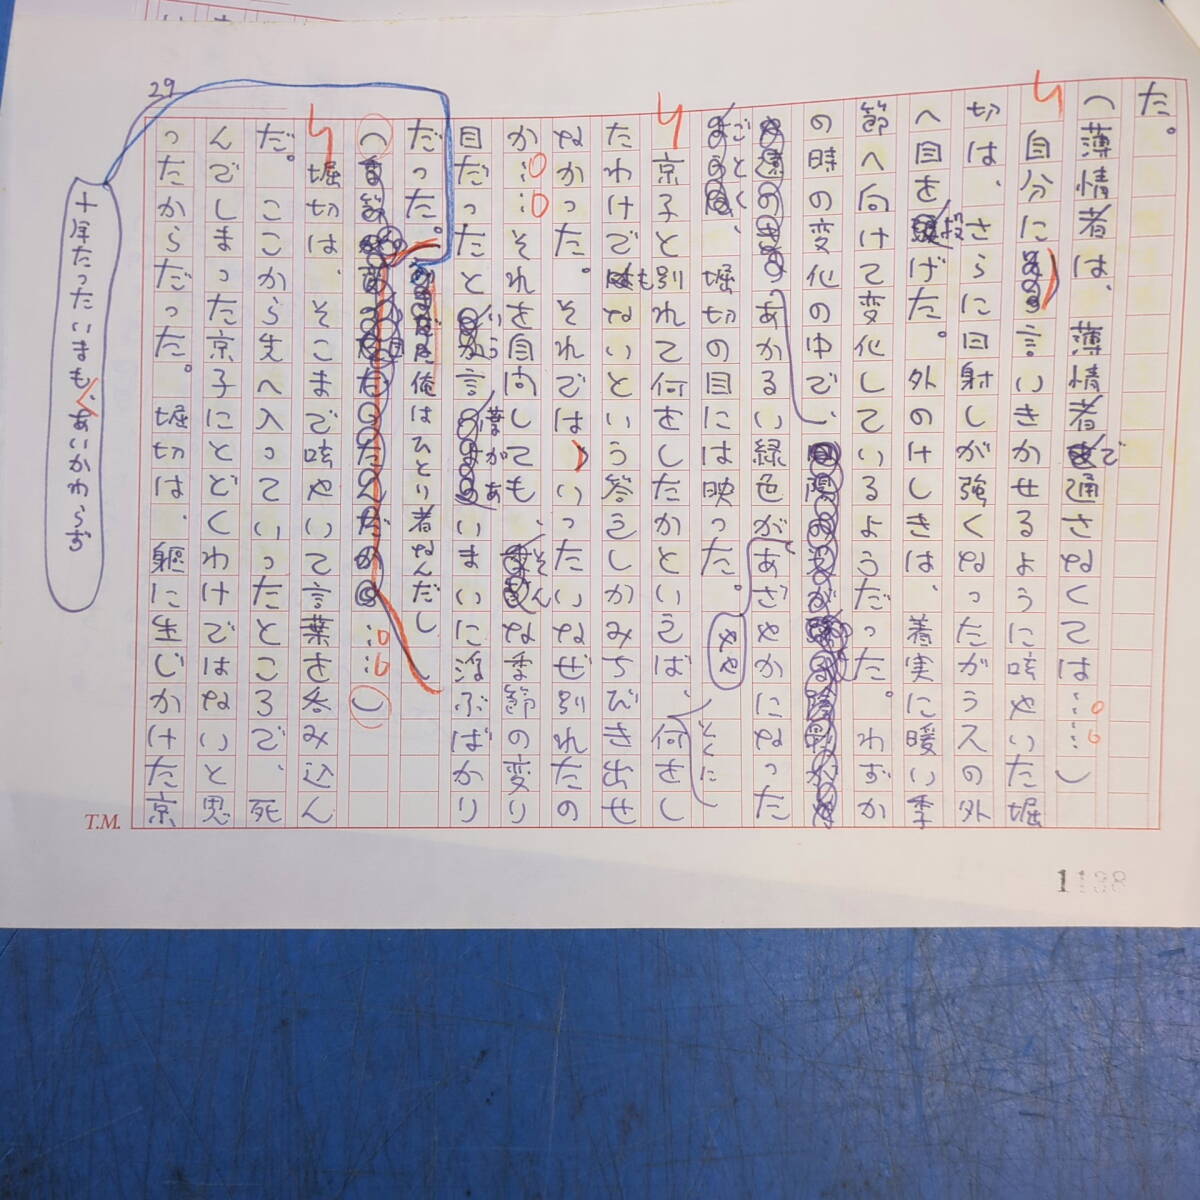 た。
(薄情者は、薄情者で通さなくては……)
自分に言いきかせるように呟やいた堀
切は、さらに日射しが強くなったガラスの外
へ目を投げた。外のけしきは、着実に暖い季
節へ向けて変化しているようだった。わずか
の時の変化の中で、
あかるい緑色があざやかになった
ごとく、堀切の目には映った。
やや
とくに
京子と別れて何をしたかといえば、何をし
たわけでもないという答えしかみちびき出せ
なかった。それではいったいなぜ別れたの
か……それを自問しても、そんな季節の変り
目だったといら言葉があいまいに浮ぶばかり
だった。
俺はひとり者なんだし
……)
堀切は、そこまで呟やいて言葉を呑み込ん
だ。ここから先へ入っていったところで、死
んでしまった京子にとどくわけではないと思
ったからだった。堀切は、軀に生じかけた京
十年たったいまも、あいかわらず
29
T.M.
1188